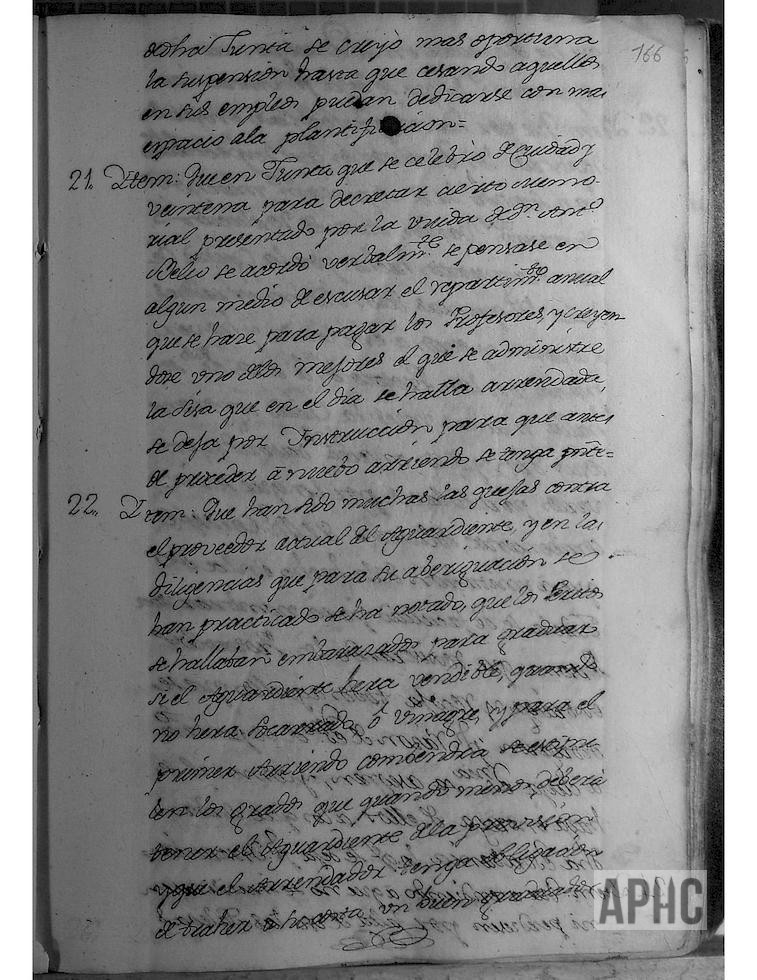 166
dicha Junta se cuyo mas oportuna
la suspension hasta que cesando aquellos
en sus empleos puedan dedicarse con mas
espacio ala plantificacion=
21. Ytem: Que en Junta que se celebro de Ciudad y
veintena para decretar cierto Memo-
rial presentado por la viuda de Dn. Anto.
Belio se acordó verbalmte. se pensase en
algun medio de escusar el repartimto. anual
que se hace para pagar los Profesores, y creyen
dose uno delos mejores el que se administre
la sisa que en el dia se halla arrendada,
se deja por Instruccion para que antes
de proceder à nuebo arriendo se tenga pnte.=
22. Ytem: Que han sido muchas las quejas contra
el proveedor actual del Aguardiente, y en las
diligencias que para su aberiguacion se
han practicado se ha notado, que los
se hallaban embarazados para graduar
si el Aguardiente hera vendible, quando
no hera ò vinagre, y para el
primer Arriendo combendrà
los grados que quando menos deberà
tener el Aguardiente dela provision
y que el Arrendador tenga obligacion
de traher un buen graduador
APHC